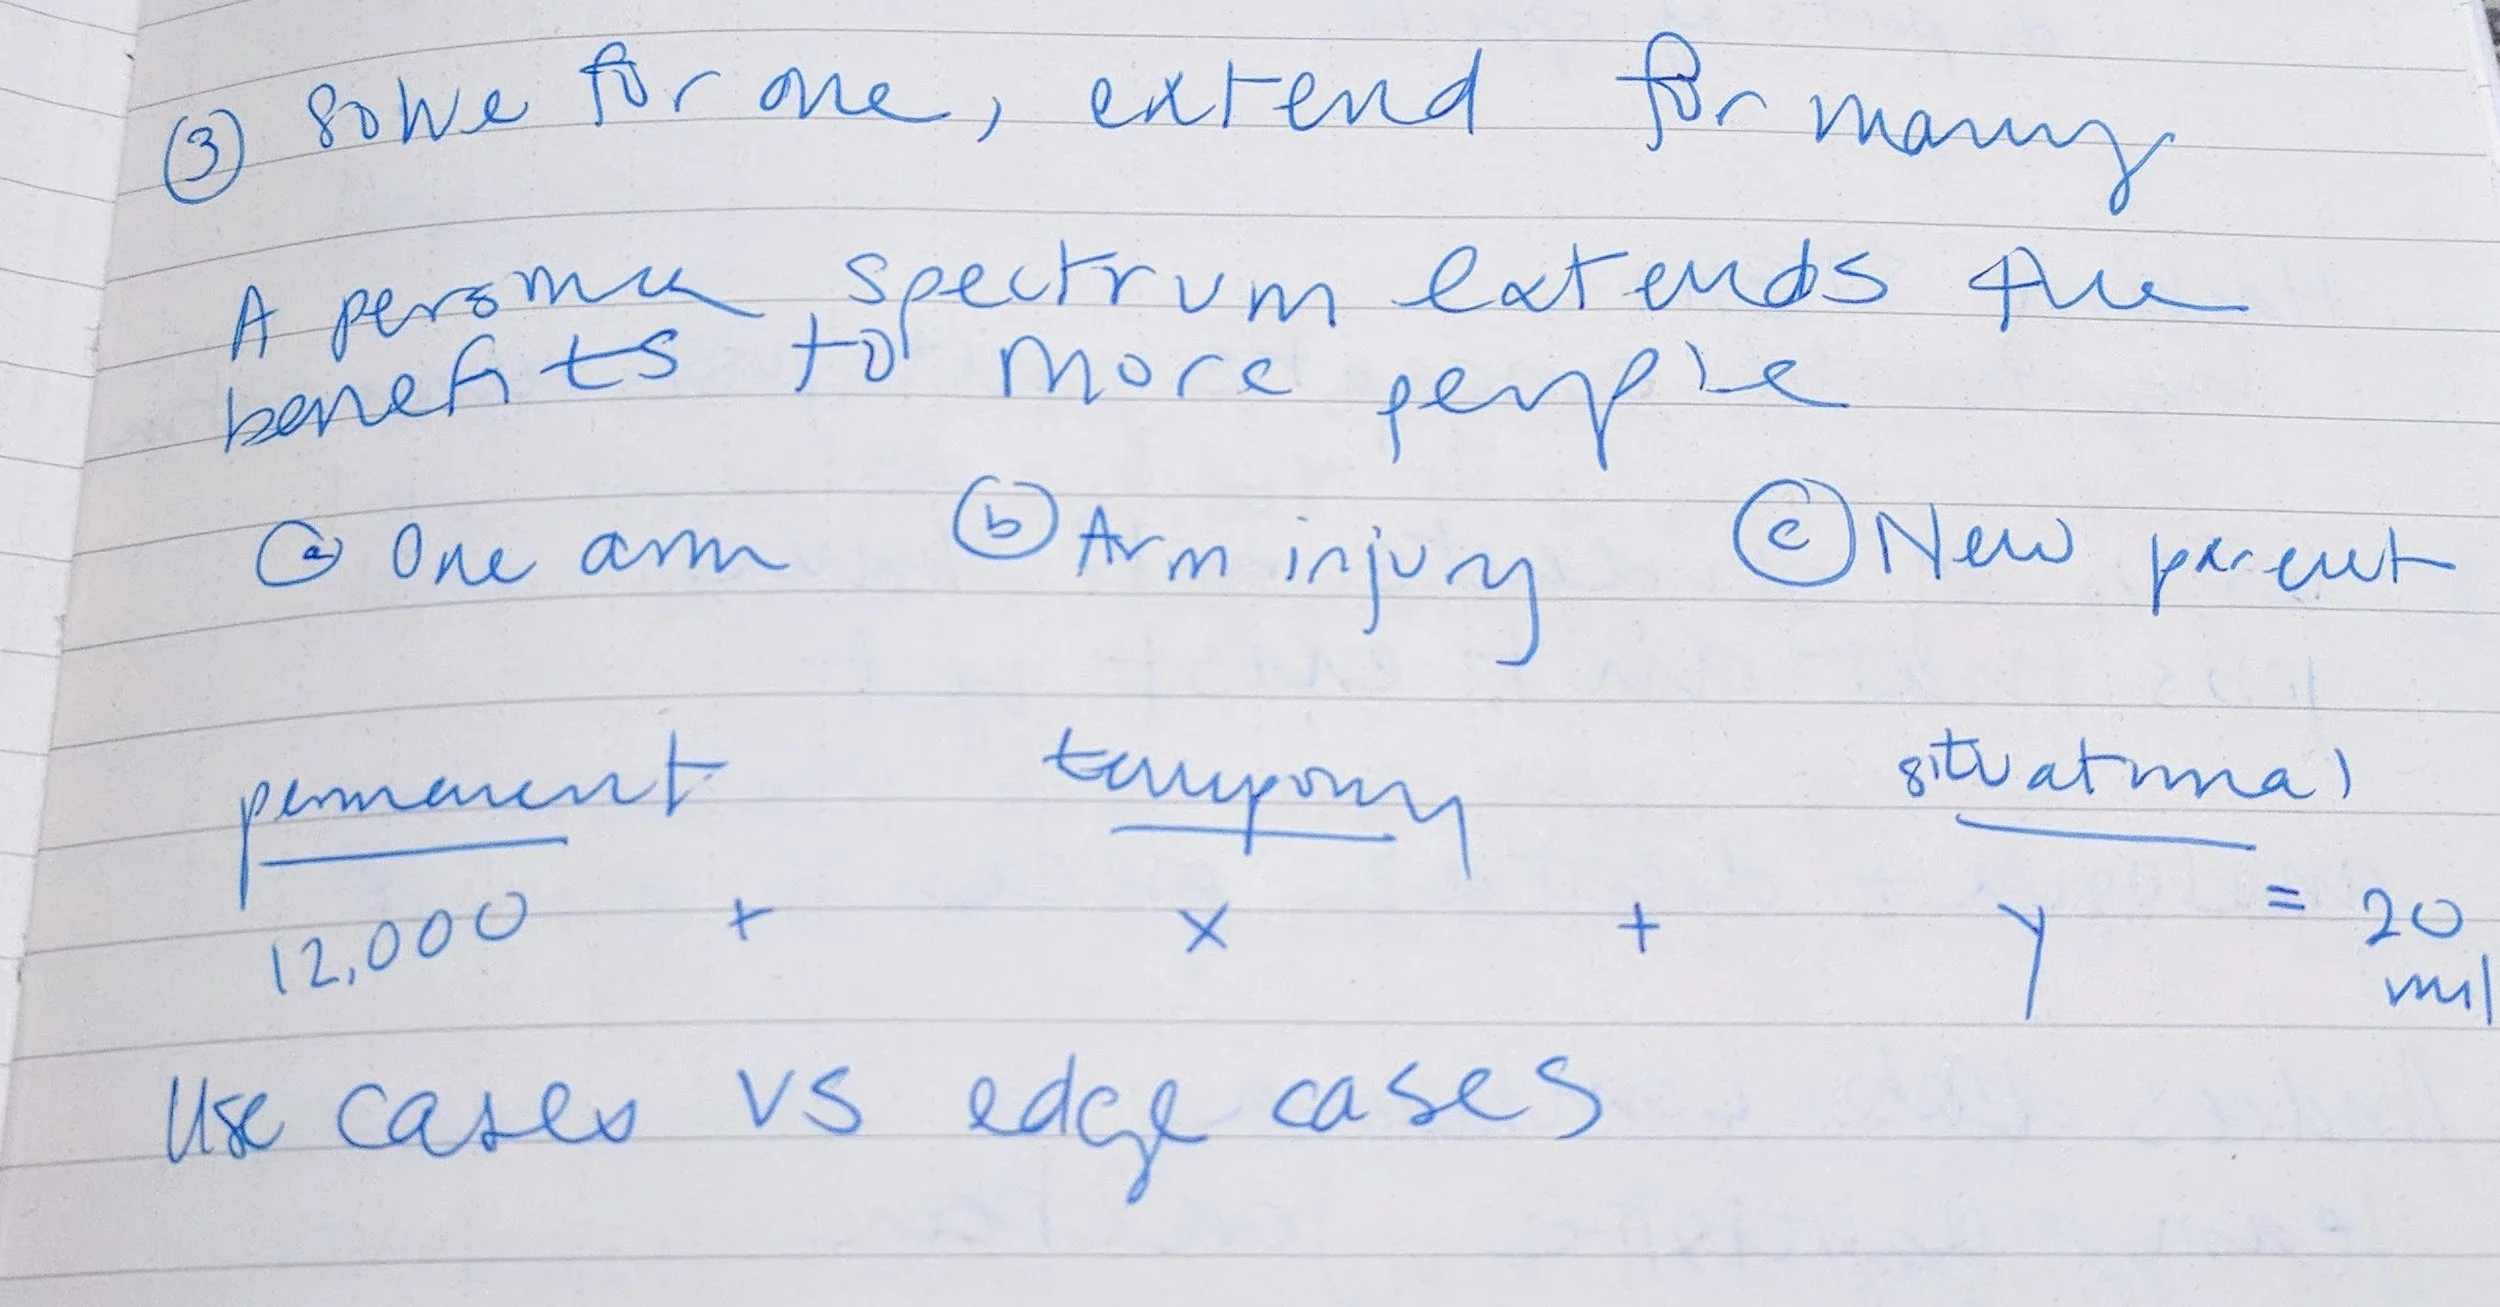 ③ Solve for one, extend for many
A persona spectrum extends the
benefits to more people
ⓐ One arm ⓑ Arm injury ⓒ New parent
permanent temporary situational
12,000 + x + y = 20 mil
Use cases vs edge cases